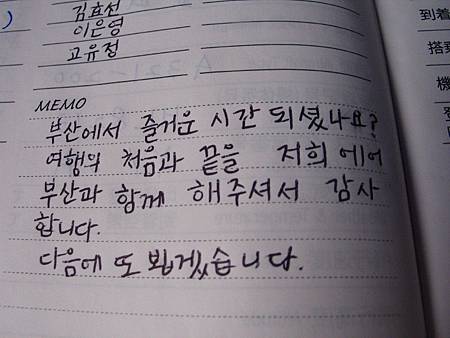 김효선
이은영
고유정
MEMO
부산에서 즐거운 시간 되셨나요?
여행의 처음과 끝을 저희 에어
부산과 함께 해주셔서 감사
합니다.
다음에 또 뵙겠습니다.
到着
搭乗
機